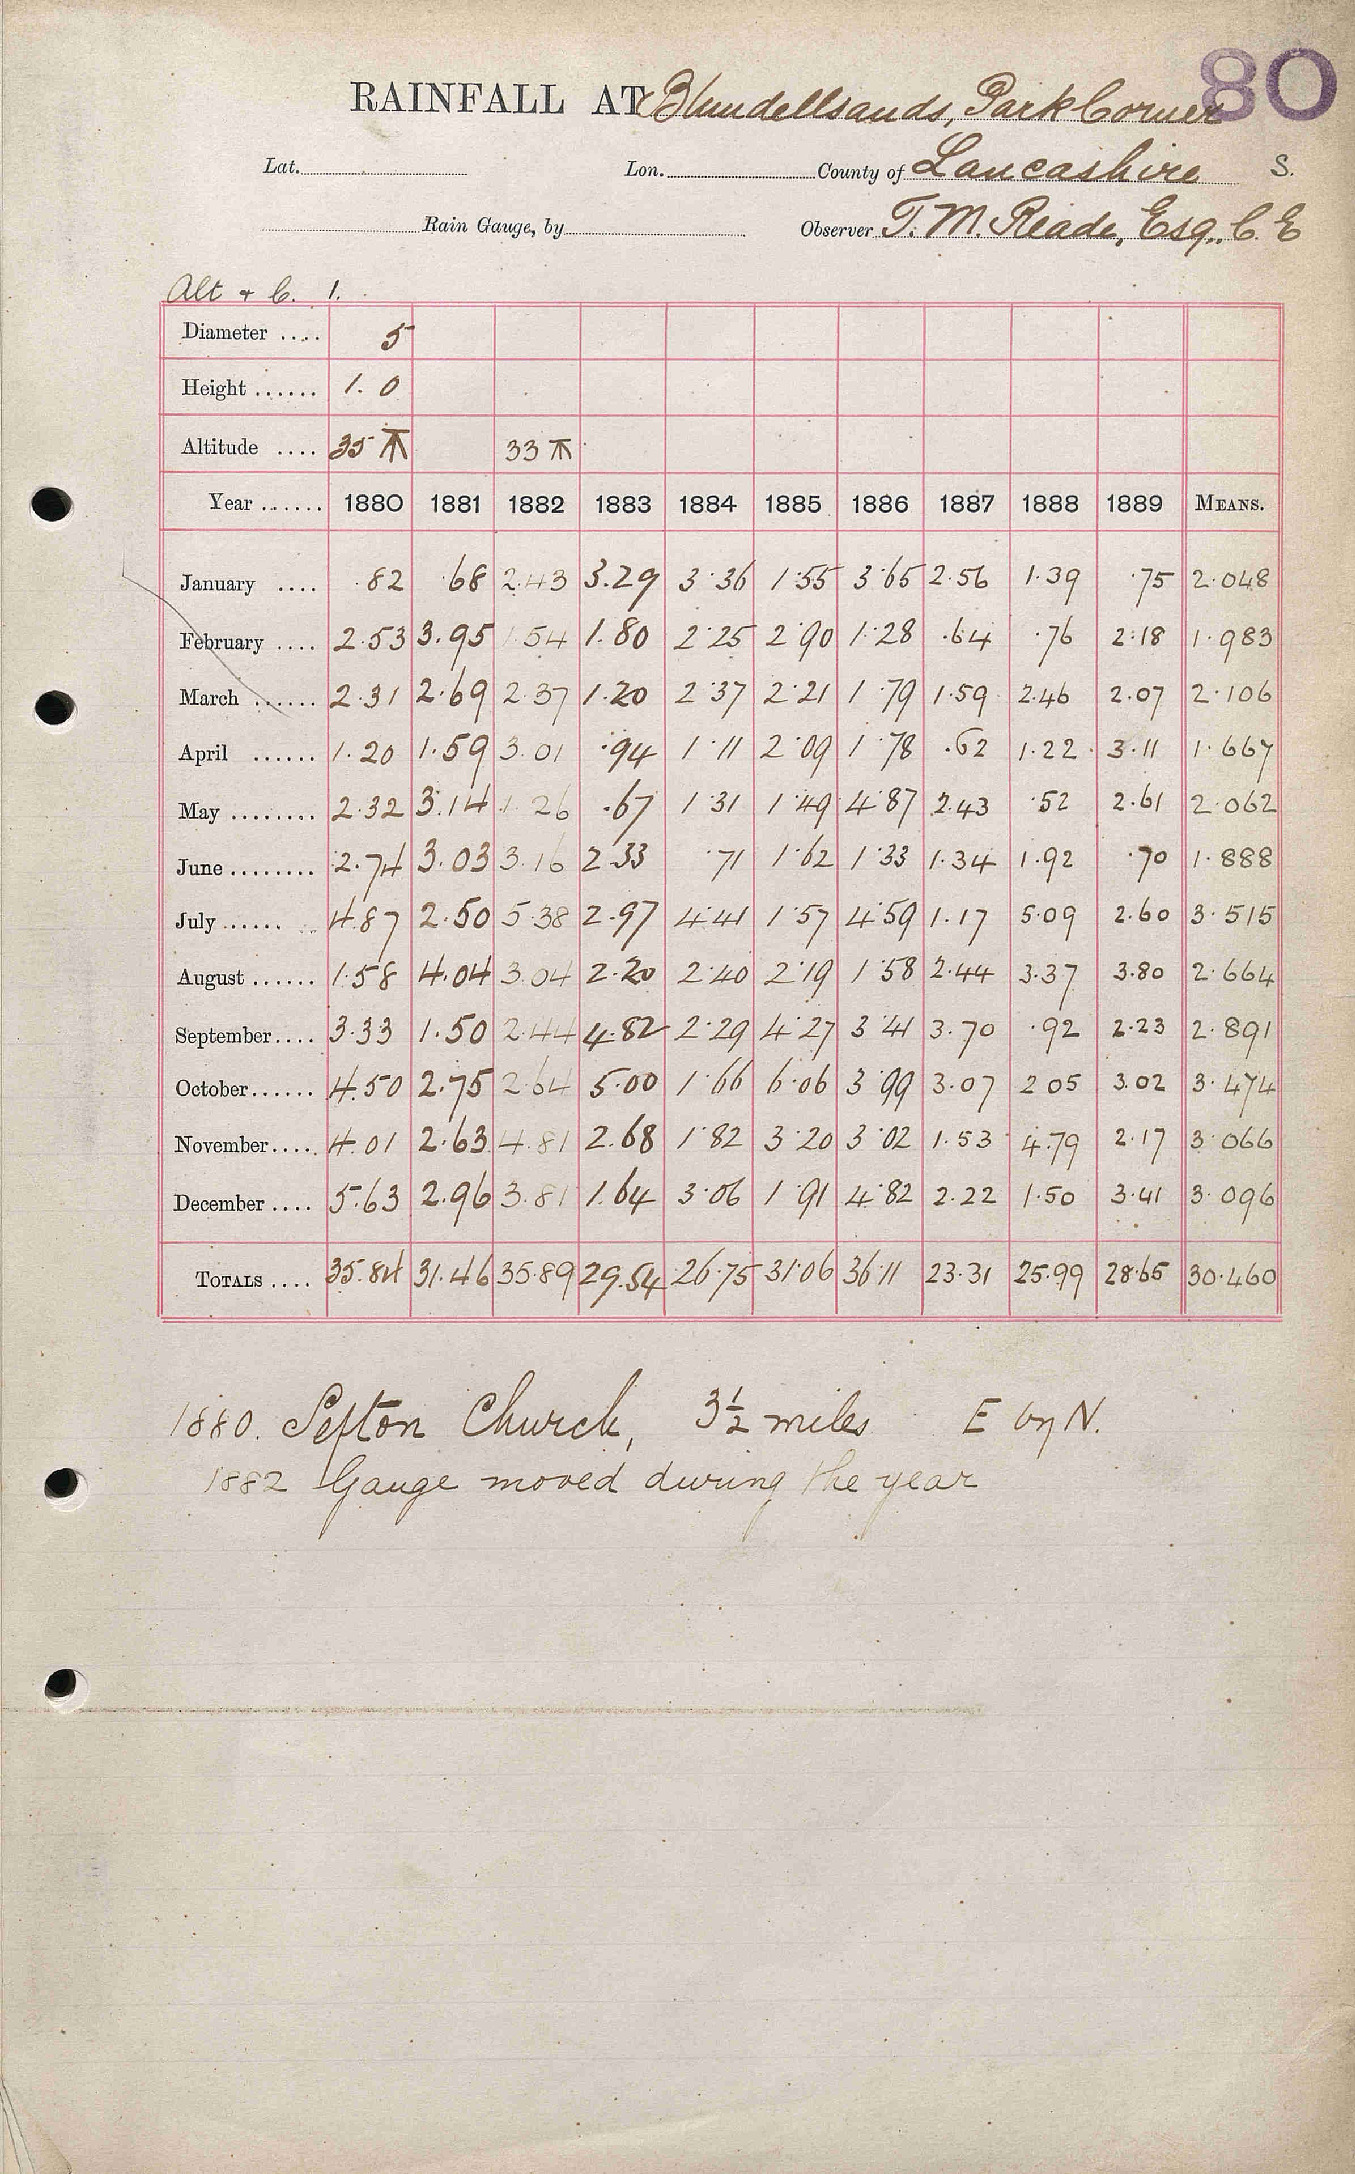 80
RAINFALL AT Blundellsands, Park Corner
Lat. Lon. County of Lancashire S.
Rain Gauge, by Observer T. M. Reade, Esq., C. E
Alt + C. 1.
Diameter .... 5
Height ...... 1. 0
Altitude .... 35 33
Year ...... 1880 1881 1882 1883 1884 1885 1886 1887 1888 1889 MEANS.
January .... .82 .68 2.43 3.29 3.36 1.55 3.65 2.56 1.39 .75 2.048
February .... 2.53 3.95 1.54 1.80 2.25 2.90 1.28 .64 .76 2.18 1.983
March ...... 2.31 2.69 2.37 1.20 2.37 2.21 1.79 1.59 2.46 2.07 2.106
April ...... 1.20 1.59 3.01 .94 1.11 2.09 1.78 .62 1.22 3.11 1.667
May ........ 2.32 3.14 1.26 .67 1.31 1.49 4.87 2.43 .52 2.61 2.062
June ........ 2.74 3.03 3.16 2.33 .71 1.62 1.33 1.34 1.92 .70 1.888
July ...... 4.87 2.50 5.38 2.97 4.41 1.57 4.59 1.17 5.09 2.60 3.515
August ...... 1.58 4.04 3.04 2.20 2.40 2.19 1.58 2.44 3.37 3.80 2.664
September .... 3.33 1.50 2.44 4.82 2.29 4.27 3.41 3.70 .92 2.23 2.891
October ...... 4.50 2.75 2.64 5.00 1.66 6.06 3.99 3.07 2 05 3.02 3.474
November ..... 4.01 2.63 4.81 2.68 1.82 3.20 3.02 1.53 4.79 2.17 3.066
December .... 5.63 2.96 3.81 1.64 3.06 1.91 4.82 2.22 1.50 3.41 3.096
TOTALS .... 35.84 31.46 35.89 29.54 26.75 31.06 36.11 23.31 25.99 28.65 30.460
1880. Sefton Church, 3½ miles E by N.
1882 Gauge moved during the year